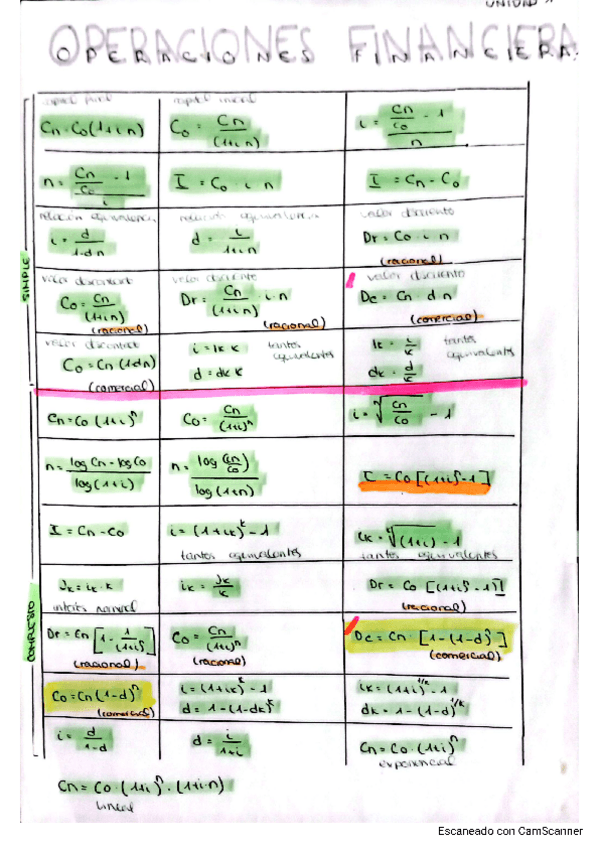 UNIDAD
OPERACIONES FINANCIERA
capital final
Cn = Co(1+i n)
capital inicial
Co = Cn / (1+i n)
i = (Cn/Co - 1) / n
n = (Cn/Co - 1) / i
I = Co i n
I = Cn - Co
relación equivalencia
i = d / 1-d n
relación equivalencia
d = i / 1+i n
valor descuento
Dr = Co i n
(racional)
SIMPLE
valor descontado
Co = Cn / (1+i n)
(racional)
valor descuento
Dr = Cn / (1+i n) · i · n
(racional)
valor descuento
Dc = Cn d n
(comercial)
valor descontado
Co = Cn (1-d n)
(comercial)
i = ik k
d = dk k
tantos equivalentes
ik = i/k
dk = d/k
tantos equivalentes
Cn = Co (1+i)^n
Co = Cn / (1+i)^n
i = ⁿ√(Cn/Co) - 1
n = log Cn - log Co / log (1+i)
n = log (Cn/Co) / log (1+n)
I = Co [(1+i)^n - 1]
I = Cn - Co
i = (1+ik)^k - 1
tantos equivalentes
ik = ᵏ√(1+i) - 1
tantos equivalentes
Jk = ik · k
interés nominal
ik = Jk / k
Dr = Co [(1+i)^n - 1]
(racional)
COMPUESTO
Dr = Cn [1 - 1/(1+i)^n]
(racional)
Co = Cn / (1+i)^n
(racional)
Dc = Cn · [1 - (1-d)^n]
(comercial)
Co = Cn (1-d)^n
(comercial)
i = (1+ik)^k - 1
d = 1 - (1-dk)^k
ik = (1+i)^1/k - 1
dk = 1 - (1-d)^1/k
i = d / 1-d
d = i / 1+i
Cn = Co · (1+i)^n
exponencial
Cn = Co · (1+i)^n · (1+i·n)
lineal
Escaneado con CamScanner